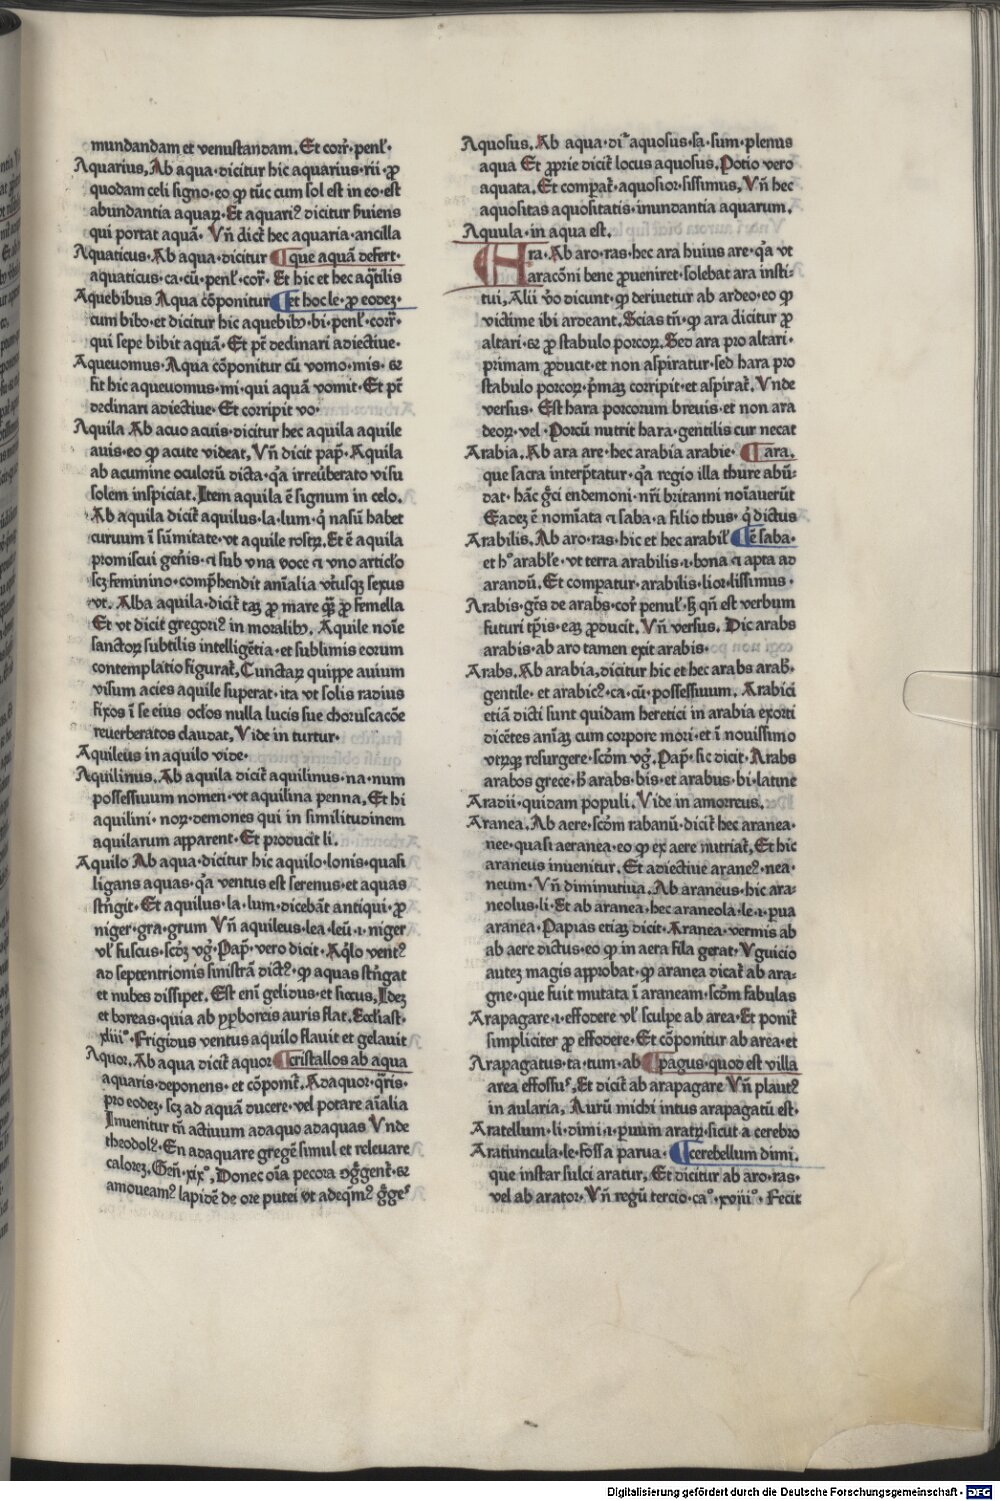 mundandam et venustandam. Et corrˀ· penlˀ·
Aquarius, Ab aqua· dicitur hic aquarius· rii· ꝓ
quodam celi signo· eo ꝙ tūc cum sol est in eo· est
abundantia aquaꝝ· Et aquariꝰ dicitur ẜuiens
qui portat aquā· Vn̄ dicit̄ hec aquaria· ancilla
Aquaticus· Ab aqua· dicitur ¶ que aquā defert·
aquaticus· ca· cū· penlˀ· corˀ· Et hic et hec aq̄tilis
Aquebibus Aqua cōponitur ¶ et hoc le· ꝓ eodeꝫ·
cum bibo· et dicitur hic aquebibꝰ· bi· penlˀ· corrˀ·
qui sepe bibit aquā· Et pt̄ declinari adiectiue·
Aqueuomus· Aqua cōponitur cū vomo· mis· et
fit hic aqueuomus· mi· qui aquā vomit· Et pt̄
declinari adiectiue· Et corripit vo·
Aquila Ab acuo acuis· dicitur hec aquila aquile
auis· eo ꝙ acute videat, Vn̄ dicit papˀ· Aquila
ab acumine oculorū dicta· q̄a irreūberato visu
solem inspiciat. Item aquila ē signum in celo.
Ab aquila dicit̄ aquilus· la· lum· q̇ nasū habet
curuum ī sūmitate· vt aquile rostꝝ. Et ē aquila
promiscui gen̄is· ⁊ sub vna voce ⁊ vno articlˀo
scꝫ feminino· comp̄hendit an̄ialia vtˀusqꝫ sexus
vt. Alba aquila· dicit̄ taꝫ ꝓ mare qꝫ̄ ꝓ femella
Et vt dicit gregoriꝰ in moralibꝰ. Aquile noīe
sanctoꝝ subtilis intelligētia· et sublimis eorum
contemplatio figurat̄, Cunctaꝝ quippe auium
visum acies aquile superat· ita vt solis radius
fixos ī se eius oclˀos nulla lucis sue choruscacōe
reuerberatos claudat, Vide in turtur·
Aquileus in aquilo vide·
Aquilinus. Ab aquila dicit̄ aquilinus· na· num
possessiuum nomen· vt aquilina penna, Et hi
aquilini· noꝝ· demones qui in similitudinem
aquilarum apparent· Et producit li.
Aquilo Ab aqua· dicitur hic aquilo· lonis· quasi
ligans aquas· q̄a ventus est serenus· et aquas
stn̄git· Et aquilus· la· lum· dicebāt antiqui· ꝓ
niger· gra· grum Vn̄ aquileus· lea· leū· ı· niger
vlˀ fuscus· scd̄ꝫ vgˀ· Papˀ· vero dicit· Aqˀlo ventꝰ
ad septentrionis sinistrā dictꝰ· ꝙ aquas stn̄gat
et nubes dissipet. Est enī gelidus· et siccus, Ideꝫ
et boreas· quia ab yꝑboreis auris flat. Eccliast·
xliii°· Frigidus ventus aquilo flauit et gelauit
Aquor. Ab aqua dicit̄ aquor ¶ cristallos ab aqua
aquaris· deponens· et cōponit̄. Adaquor· q̄ris·
pro eodeꝫ· scꝫ ad aquā ducere· vel potare aīalia
Inuenitur tn̄ actiuum adaquo adaquas Vnde
theodolꝰ· En adaquare gregē simul et releuare
caloreꝫ. Gen̄· xix°, Donec oīa pecora ꝯg̊gent̄· et
amoueamꝰ lapidē de ore putei vt adeqm̄ꝰ g̊geˢ
Aquosus. Ab aqua· dr̄ aquosus· sa· sum· plenus
aqua Et ꝓprie dicit̄ locus aquosus. Potio vero
aquata. Et comparat̄· aquosior· sissimus, Vn̄ hec
aquositas aquositatis· inundantia aquarum.
Aquula· in aqua est.
Ara. Ab aro· ras· hec ara huius are· q̄a vt
araco̅ni bene ꝓueniret· solebat ara insti-
tui, Alii v̊o dicunt· ꝙ deriuetur ab ardeo· eo ꝙ
victime ibi ardeant. Scias tn̄· ꝙ ara dicitur ꝓ
altari· et ꝓ stabulo porcoꝝ. Sed ara pro altari·
primam ꝓducit· et non aspiratur· sed hara pro
stabulo porcoꝝ· p̄maꝫ corripit· et aspirat̄. Vnde
versus· Est hara porcorum breuis· et non ara
deoꝝ· vel· Porcū nutrit hara· gentilis cur necat
Arabia. Ab ara are· hec arabia arabie· ¶ ara.
que sacra interp̄tatur· q̄a regio illa thure abū-
dat· hāc g̊ci endemoni· nr̄i britanni noīauerūt
Eadeꝫ ē nomīata ⁊ saba· a filio thus· q̇ dictus
Arabilis. Ab aro· ras· hic et hec arabilˀ ¶ ē saba·
et h° arablˀe· vt terra arabilis· ı· bona ⁊ apta ad
arandū. Et compatur· arabilis· lior· lissimus·
Arabis· gt̄s de arabs· corˀ penulˀ· sꝫ qn̄ est verbum
futuri tp̄is· eaꝫ ꝓducit. Vn̄ versus. Dic arabs
arabis· ab aro tamen exit arabis·
Arabs. Ab arabia, dicitur hic et hec arabs arabˀ·
gentile· et arabicꝰ· ca· cū· possessiuum. Arabici
etiā dicti sunt quidam heretici in arabia exorti
dicētes an̄iaꝫ cum corpore mori· et ī nouissimo
vtrꝫqꝫ resurgere· scd̄m vgˀ. Papˀ· sic dicit· Arabs
arabos grece· sꝫ arabs· bis· et arabus· bi· latine
Aradii· quidam populi. Vide in amorreus.
Aranea. Ab aere· scd̄m rabanū· dicit̄ hec aranea·
nee· quasi aeranea· eo ꝙ ex aere nutriat̄, Et hic
araneus inuenitur. Et adiectiue araneꝰ· nea·
neum· Vn̄ diminutiua. Ab araneus· hic ara-
neolus· li· Et ab aranea· hec araneola· le· ı· ꝑua
aranea· Papias etiaꝫ dicit· Aranea· vermis ab
ab aere dictus· eo ꝙ in aera fila gerat· Vguicio
auteꝫ magis approbat· ꝙ aranea dicat̄ ab ara-
gne· que fuit mutata ī araneam· scd̄m fabulas
Arapagare· ı· effodere vlˀ sculpe ab area· Et ponit̄
simpliciter ꝓ effodere· Et cōponitur ab area· et
Arapagatus· ta· tum· ab ¶ pagus· quod est villa
area effossuˢ, Et dicit̄ ab arapagare Vn̄ plautꝰ
in aularia, Aurū michi intus arapagatū est·
Aratellum· li· dimi· ı· ꝑuum aratꝝ· sicut a cerebro
Aratiuncula· le· fossa parua· ¶ cerebellum dimi.
que instar sulci aratur, Et dicitur ab aro· ras·
vel ab arator· Vn̄ regū tercio· ca°· xviii°· Fecit
Digitalisierung gefördert durch die Deutsche Forschungsgemeinschaft - DFG